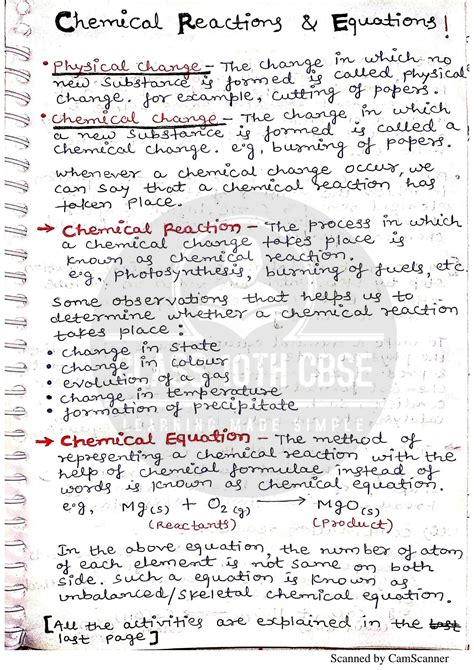 Chemical Reactions & Equations!
• Physical Change – The change in which no
new substance is formed is called physical
change. for example, cutting of papers.
• Chemical Change – The change in which
a new substance is formed is called a
chemical change. e.g, burning of papers.
whenever a chemical change occur, we
can say that a chemical reaction has
taken place.
→ Chemical Reaction – The process in which
a chemical change takes place is
known as chemical reaction.
e.g, photosynthesis, burning of fuels, etc.
Some observations that helps us to
determine whether a chemical reaction
takes place:
• change in state
• change in colour
• evolution of a gas
• change in temperature
• formation of precipitate
CBSE
LEARNING MADE SIMPLE
→ Chemical Equation – The method of
representing a chemical reaction with the
help of chemical formulae instead of
words is known as chemical equation.
e.g, Mg(s) + O2(g) → MgO(s)
(Reactants) (Product)
In the above equation, the number of atom
of each element is not same on both
side. Such a equation is known as
unbalanced/skeletal chemical equation.
[All the activities are explained in the last
last page]
Scanned by CamScanner